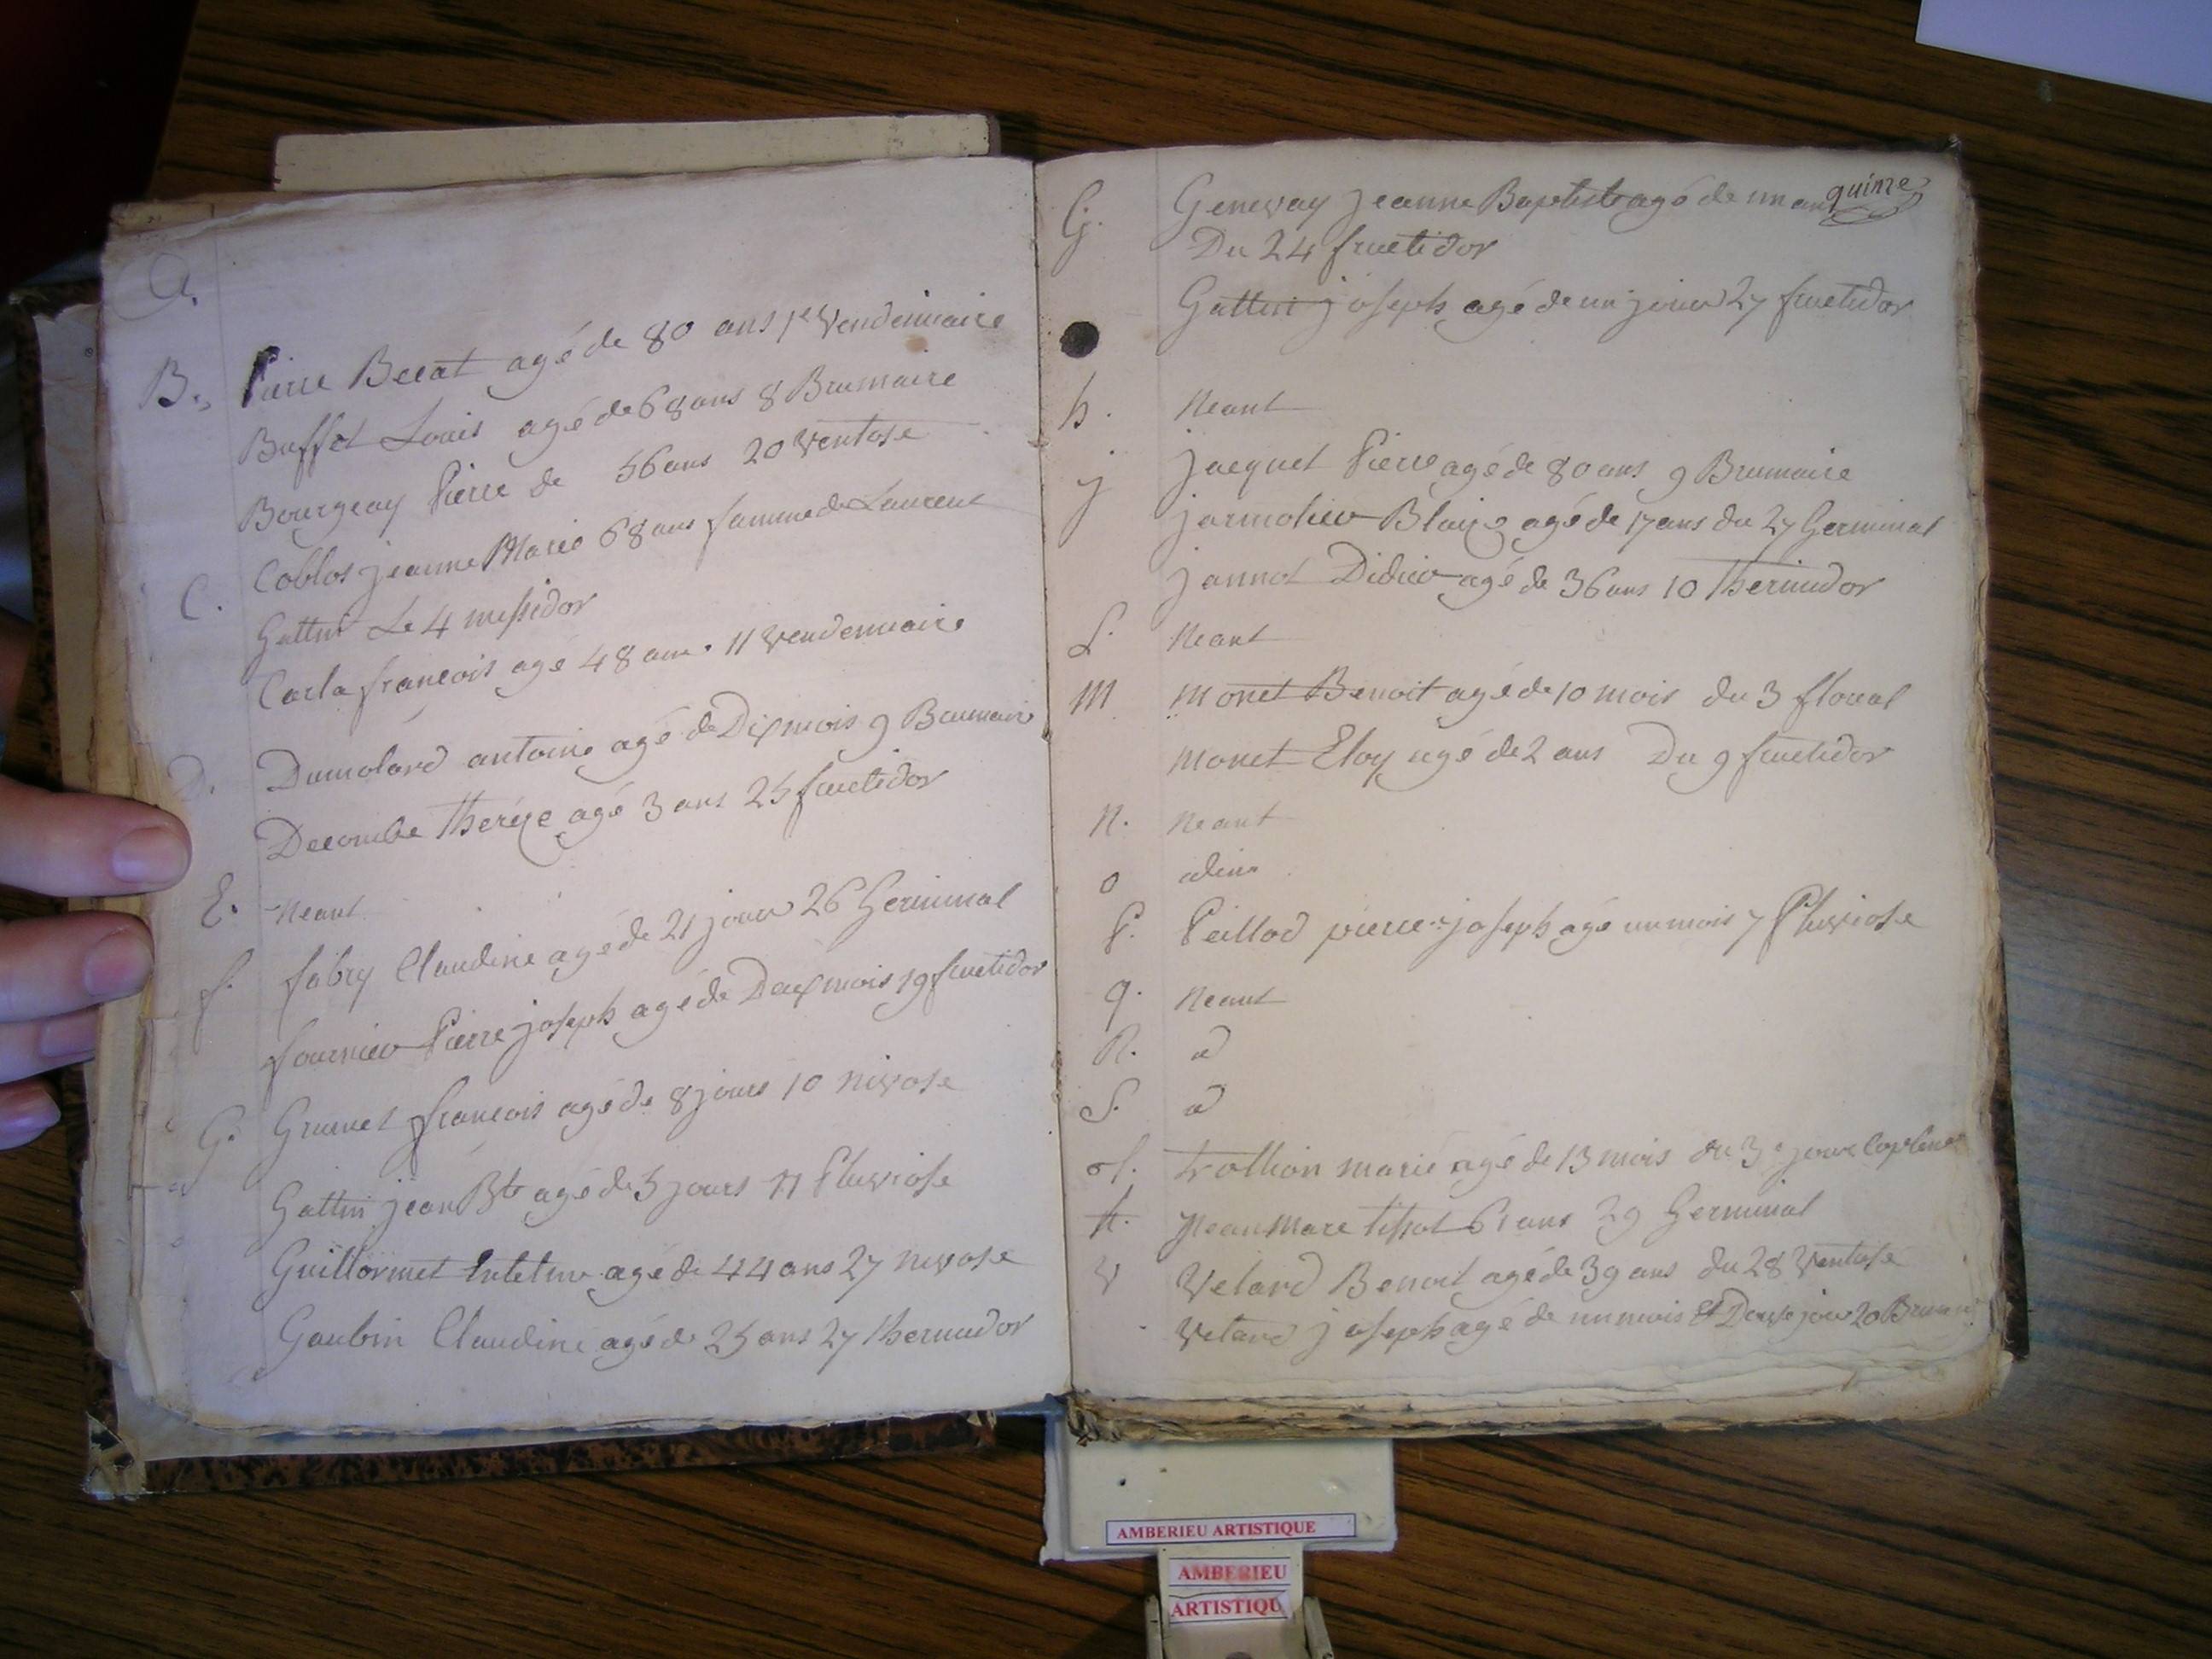 A.
B. Pierre Becat agé de 80 ans 1er Vendemiaire
Buffet Louis agé de 68 ans 8 Brumaire
Bourgeay Pierre de 56 ans 20 Ventose
C. Coblos jeanne Marie 68 ans famme de Laurent
Gattin Le 4 messidor
Carla françois agé 48 ans. 11 Vendemiaire
D. Dumolard antoine agé de Dix mois 9 Brumaire
Decombe Therèze agé 3 ans 25 fructidor
E. Neant
f. fabry Claudine agé de 21 jour 26 Germinal
fournier Pierre joseph agé de Deux mois 19 fructidor
G. Grumet françois agé de 8 jours 10 nivose
Gattin jean Bte agé de 5 jours 11 Pluviose
Guillormet agé de 44 ans 27 nivose
Gaubin Claudine agé de 25 ans 27 Thermidor
G. Genevay jeanne Baptiste agé de un an quinze
Du 24 fructidor
Gattin joseph agé de un jour 27 fructidor
h. Neant
j jacquet Pierre agé de 80 ans 9 Brumaire
jarmolieu Blaize agé de 17 ans du 27 Germinal
jannot Didier agé de 36 ans 10 Thermidor
L. Neant
M Monet Benoit agé de 10 mois du 3 floreal
Monet Eloy agé de 2 ans Du 9 fructidor
N. Neant
O idem
P. Peillod pierre joseph agé un mois 7 Pluviose
q. Neant
R. id
S. id
t. trollion marie agé de 13 mois du 3e jour
t. jean marc tissot 61 ans 29 Germinal
V Velard Benoit agé de 39 ans du 28 Ventose
Velard joseph agé de un mois Et Douze jour 20 Brumaire
AMBERIEU ARTISTIQUE
AMBERIEU
ARTISTIQU